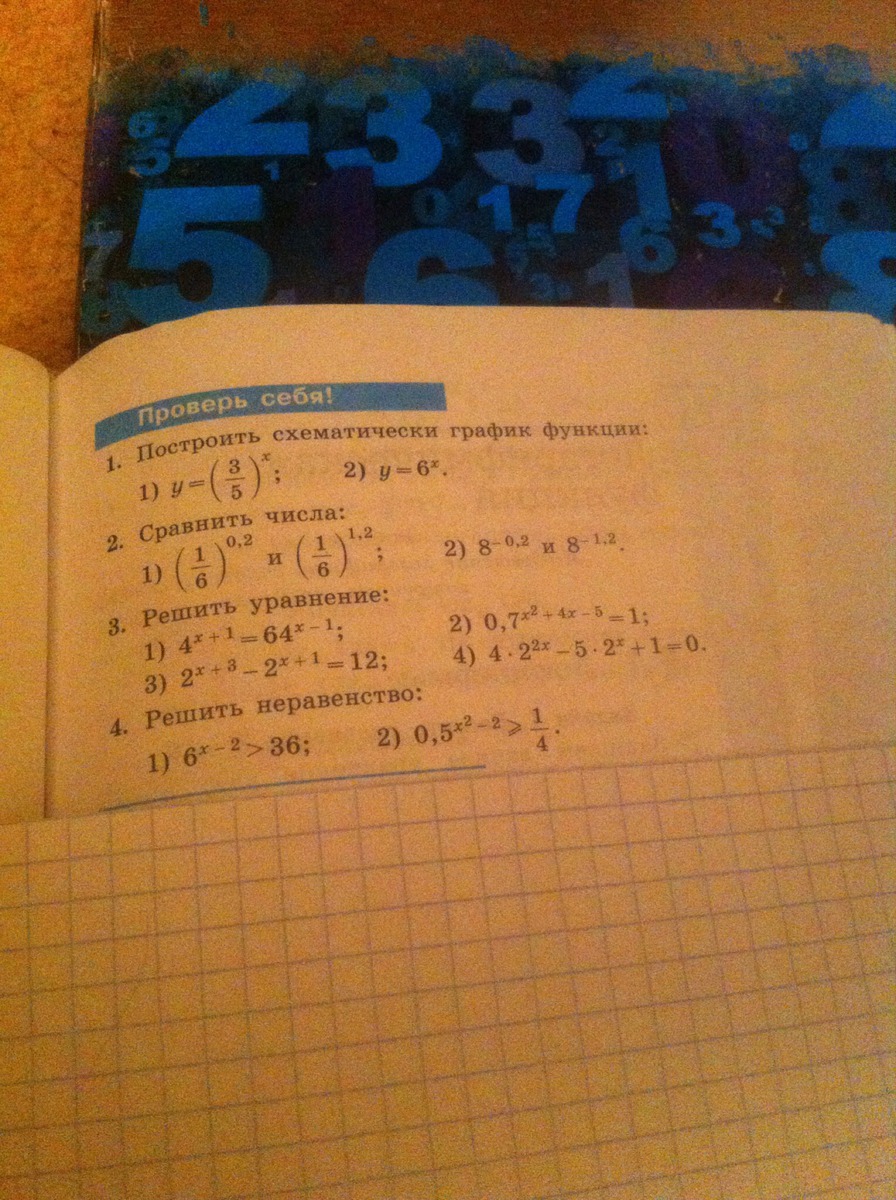 6 2 3 3 2
5 1 2 1
5 0 17 3
7 6 6
1
Проверь себя!
1. Построить схематически график функции:
1) y=(3/5)^x; 2) y=6^x.
2. Сравнить числа:
1) (1/6)^{0,2} и (1/6)^{1,2}; 2) 8^{-0,2} и 8^{-1,2}.
3. Решить уравнение:
1) 4^{x+1}=64^{x-1}; 2) 0,7^{x^2+4x-5}=1;
3) 2^{x+3}-2^{x+1}=12; 4) 4·2^{2x}-5·2^x+1=0.
4. Решить неравенство:
1) 6^{x-2}>36; 2) 0,5^{x^2-2}⩾1/4.